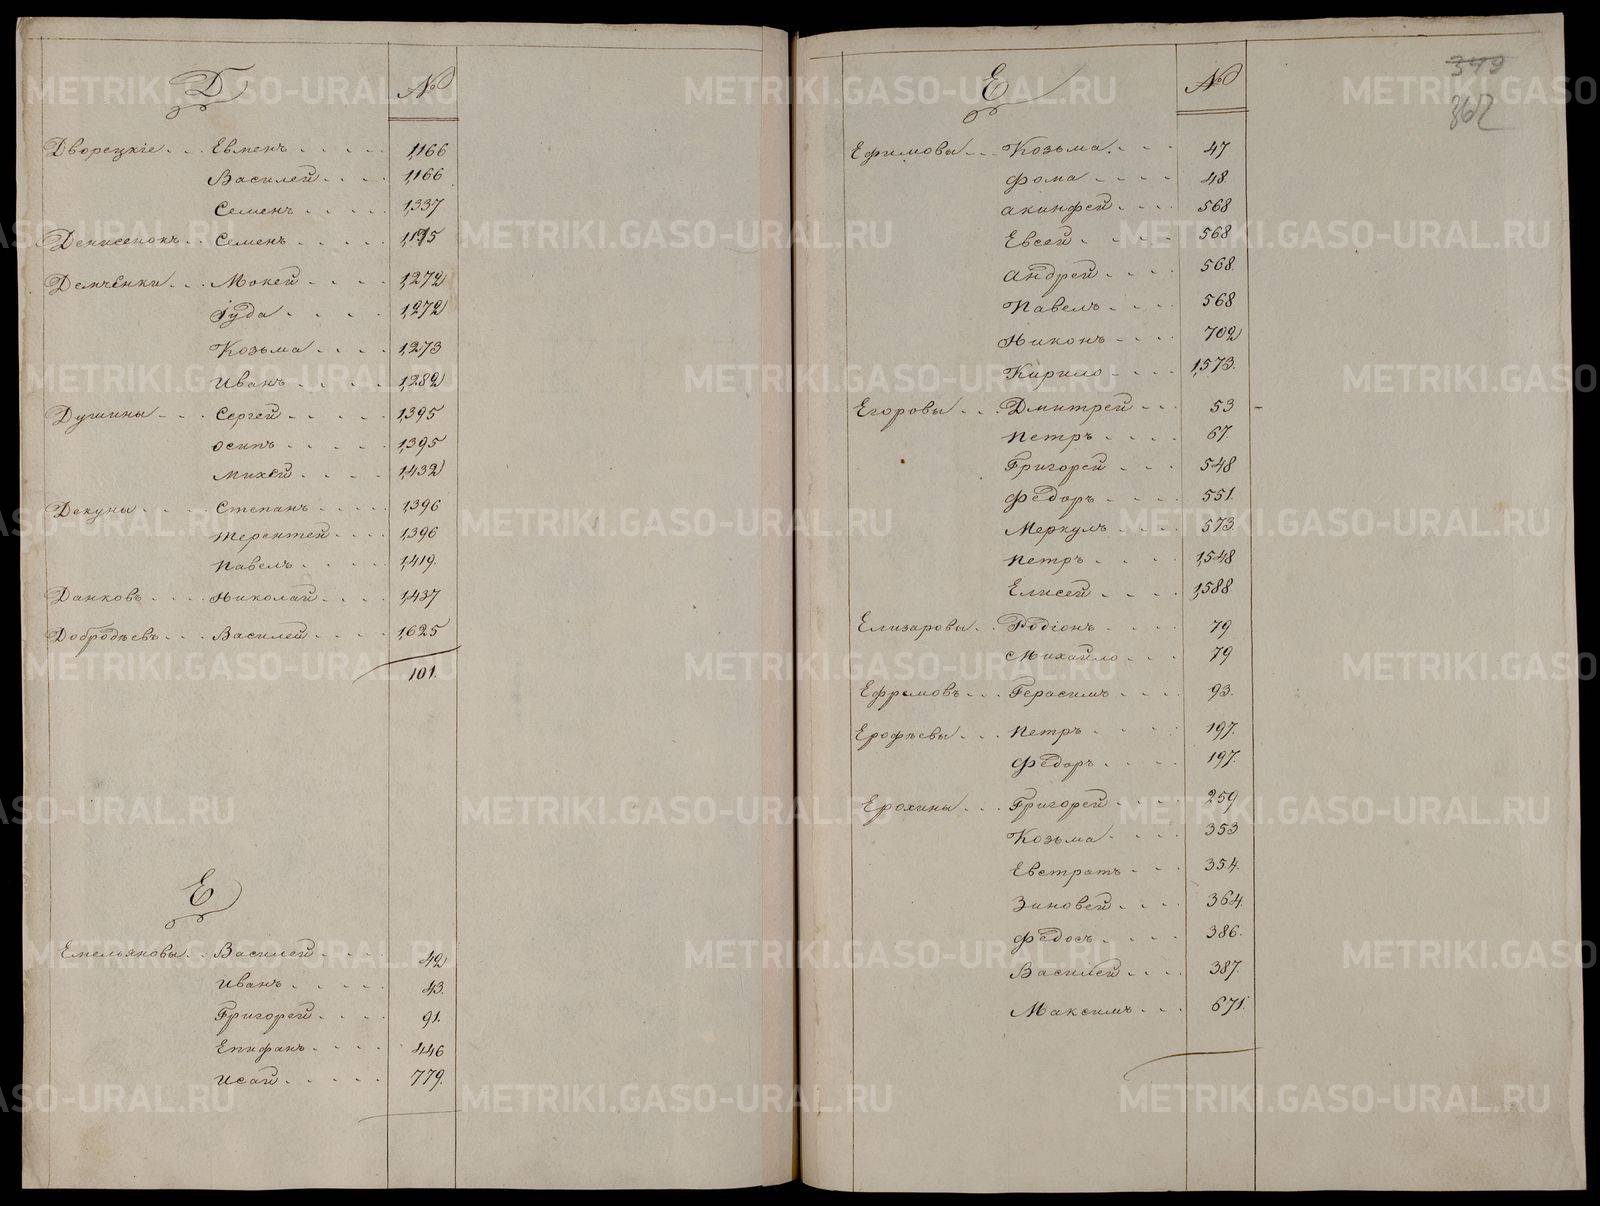 Д №
Дворецкіе . . . Евменъ . . . . . 1,166
Василей . . . . 1,166
Семенъ . . . . . 1,337
Денисенокъ . . Семенъ . . . . . 1,195
Демченки . . . Мокей . . . . . 1,272
Іуда . . . . . 1,272
Козьма . . . . 1,273
Иванъ . . . . . 1,282
Душины . . . Сергей . . . . . 1,395
Осипъ . . . . . 1,395
Михей . . . . . 1,432
Декуны . . . . Степанъ . . . . . 1,396
Терентей . . . . 1,396
Павелъ . . . . . 1,419.
Данковъ . . . . Николай . . . . 1,437
Добродѣевъ . . . Василей . . . . 1,625
101.
Е
Емельяновы . . Василей . . . . 42
Иванъ . . . . . 43.
Григорей . . . . 91.
Епифанъ . . . . 446
Исай . . . . . 779.
379
362
Е №
Ефимовы . . . Козьма . . . . 47
Фома . . . . 48.
Акинфей . . . . 568
Евсей . . . . 568
Андрей . . . . 568.
Павелъ . . . . 568
Никонъ . . . . 702
Кирило . . . . 1,573.
Егоровы . . . Дмитрей . . . 53 –
Петръ . . . . 67.
Григорей . . . 548
Федоръ . . . . 551.
Меркулъ . . . . 573.
Петръ . . . . 1,548
Елисей . . . . 1,588
Елизаровы . . Родіонъ . . . . 79
Михайло . . . 79
Ефремовъ . . . Герасимъ . . . . 93.
Ерофѣевы . . . Петръ . . . . 197.
Федоръ . . . . 197.
Ерохины . . . Григорей . . . . 259
Козьма . . . . 353
Евстратъ . . . 354.
Зиновей . . . . 364.
Федосъ . . . . 386.
Василей . . . . 387.
Максимъ . . . 671.
METRIKI.GASO-URAL.RU